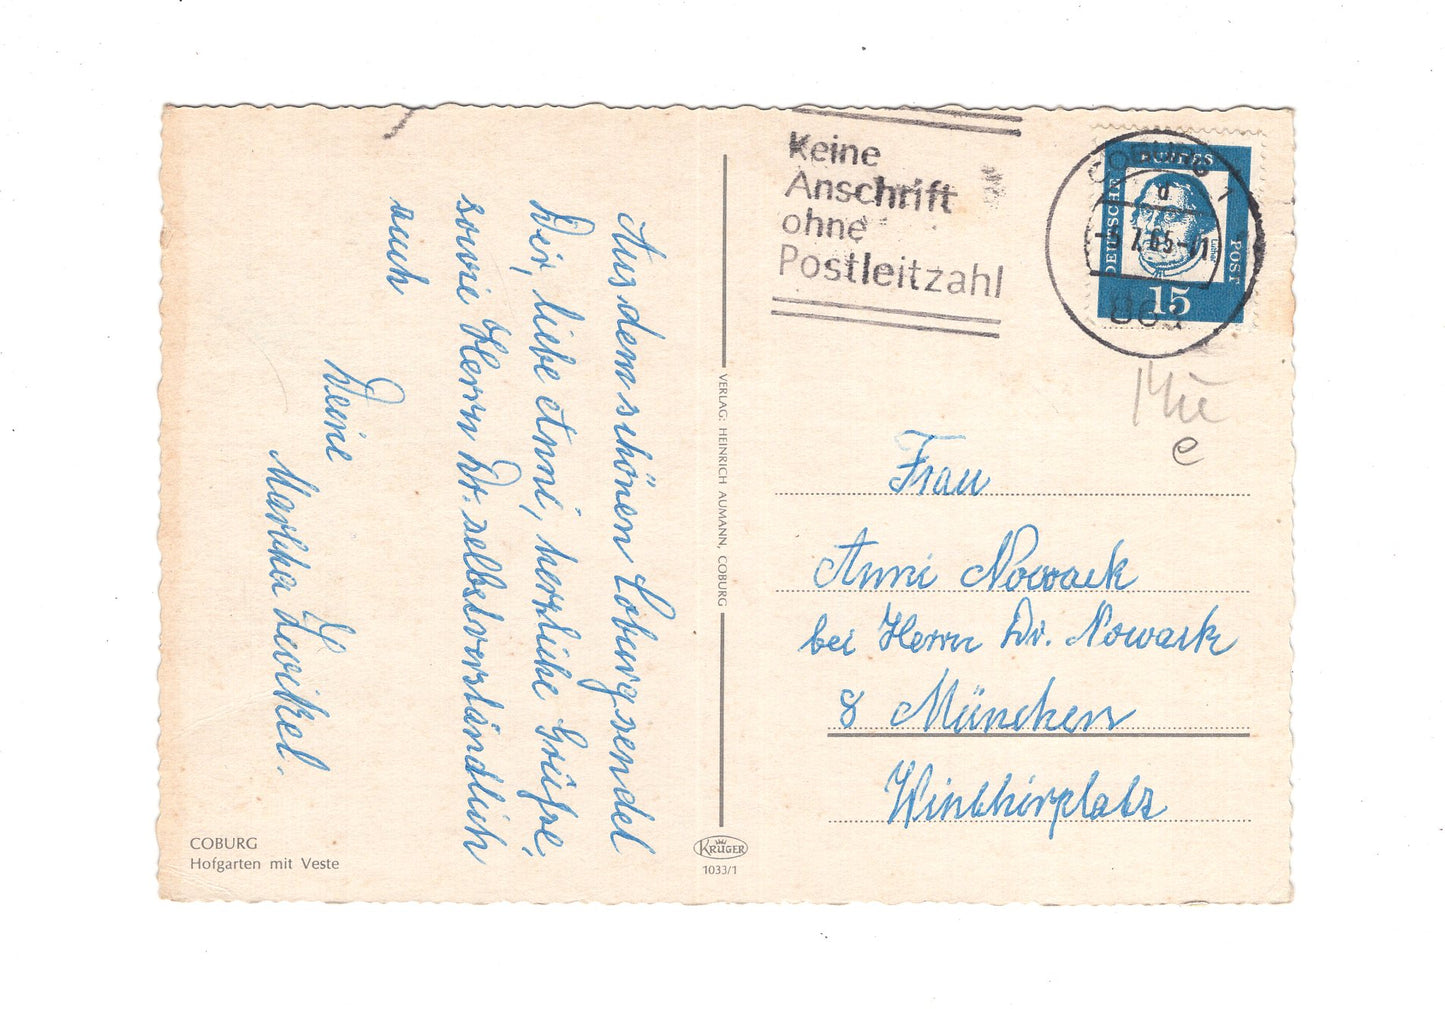 Aus dem schönen Coburg sendet
Dir, liebe Anni, herzliche Grüße,
sowie Herrn Dr. selbstverständlich
auch
Deine
Martha
COBURG
Hofgarten mit Veste
VERLAG: HEINRICH AUMANN, COBURG
KRÜGER
1033/1
Keine
Anschrift
ohne
Postleitzahl
COBURG 1
d
7.65-11
863
DEUTSCHE
BUNDES
POST
Luther
15
e
Frau
Anni Nowack
bei Herrn Dr. Nowack
8 München
Winthirplatz